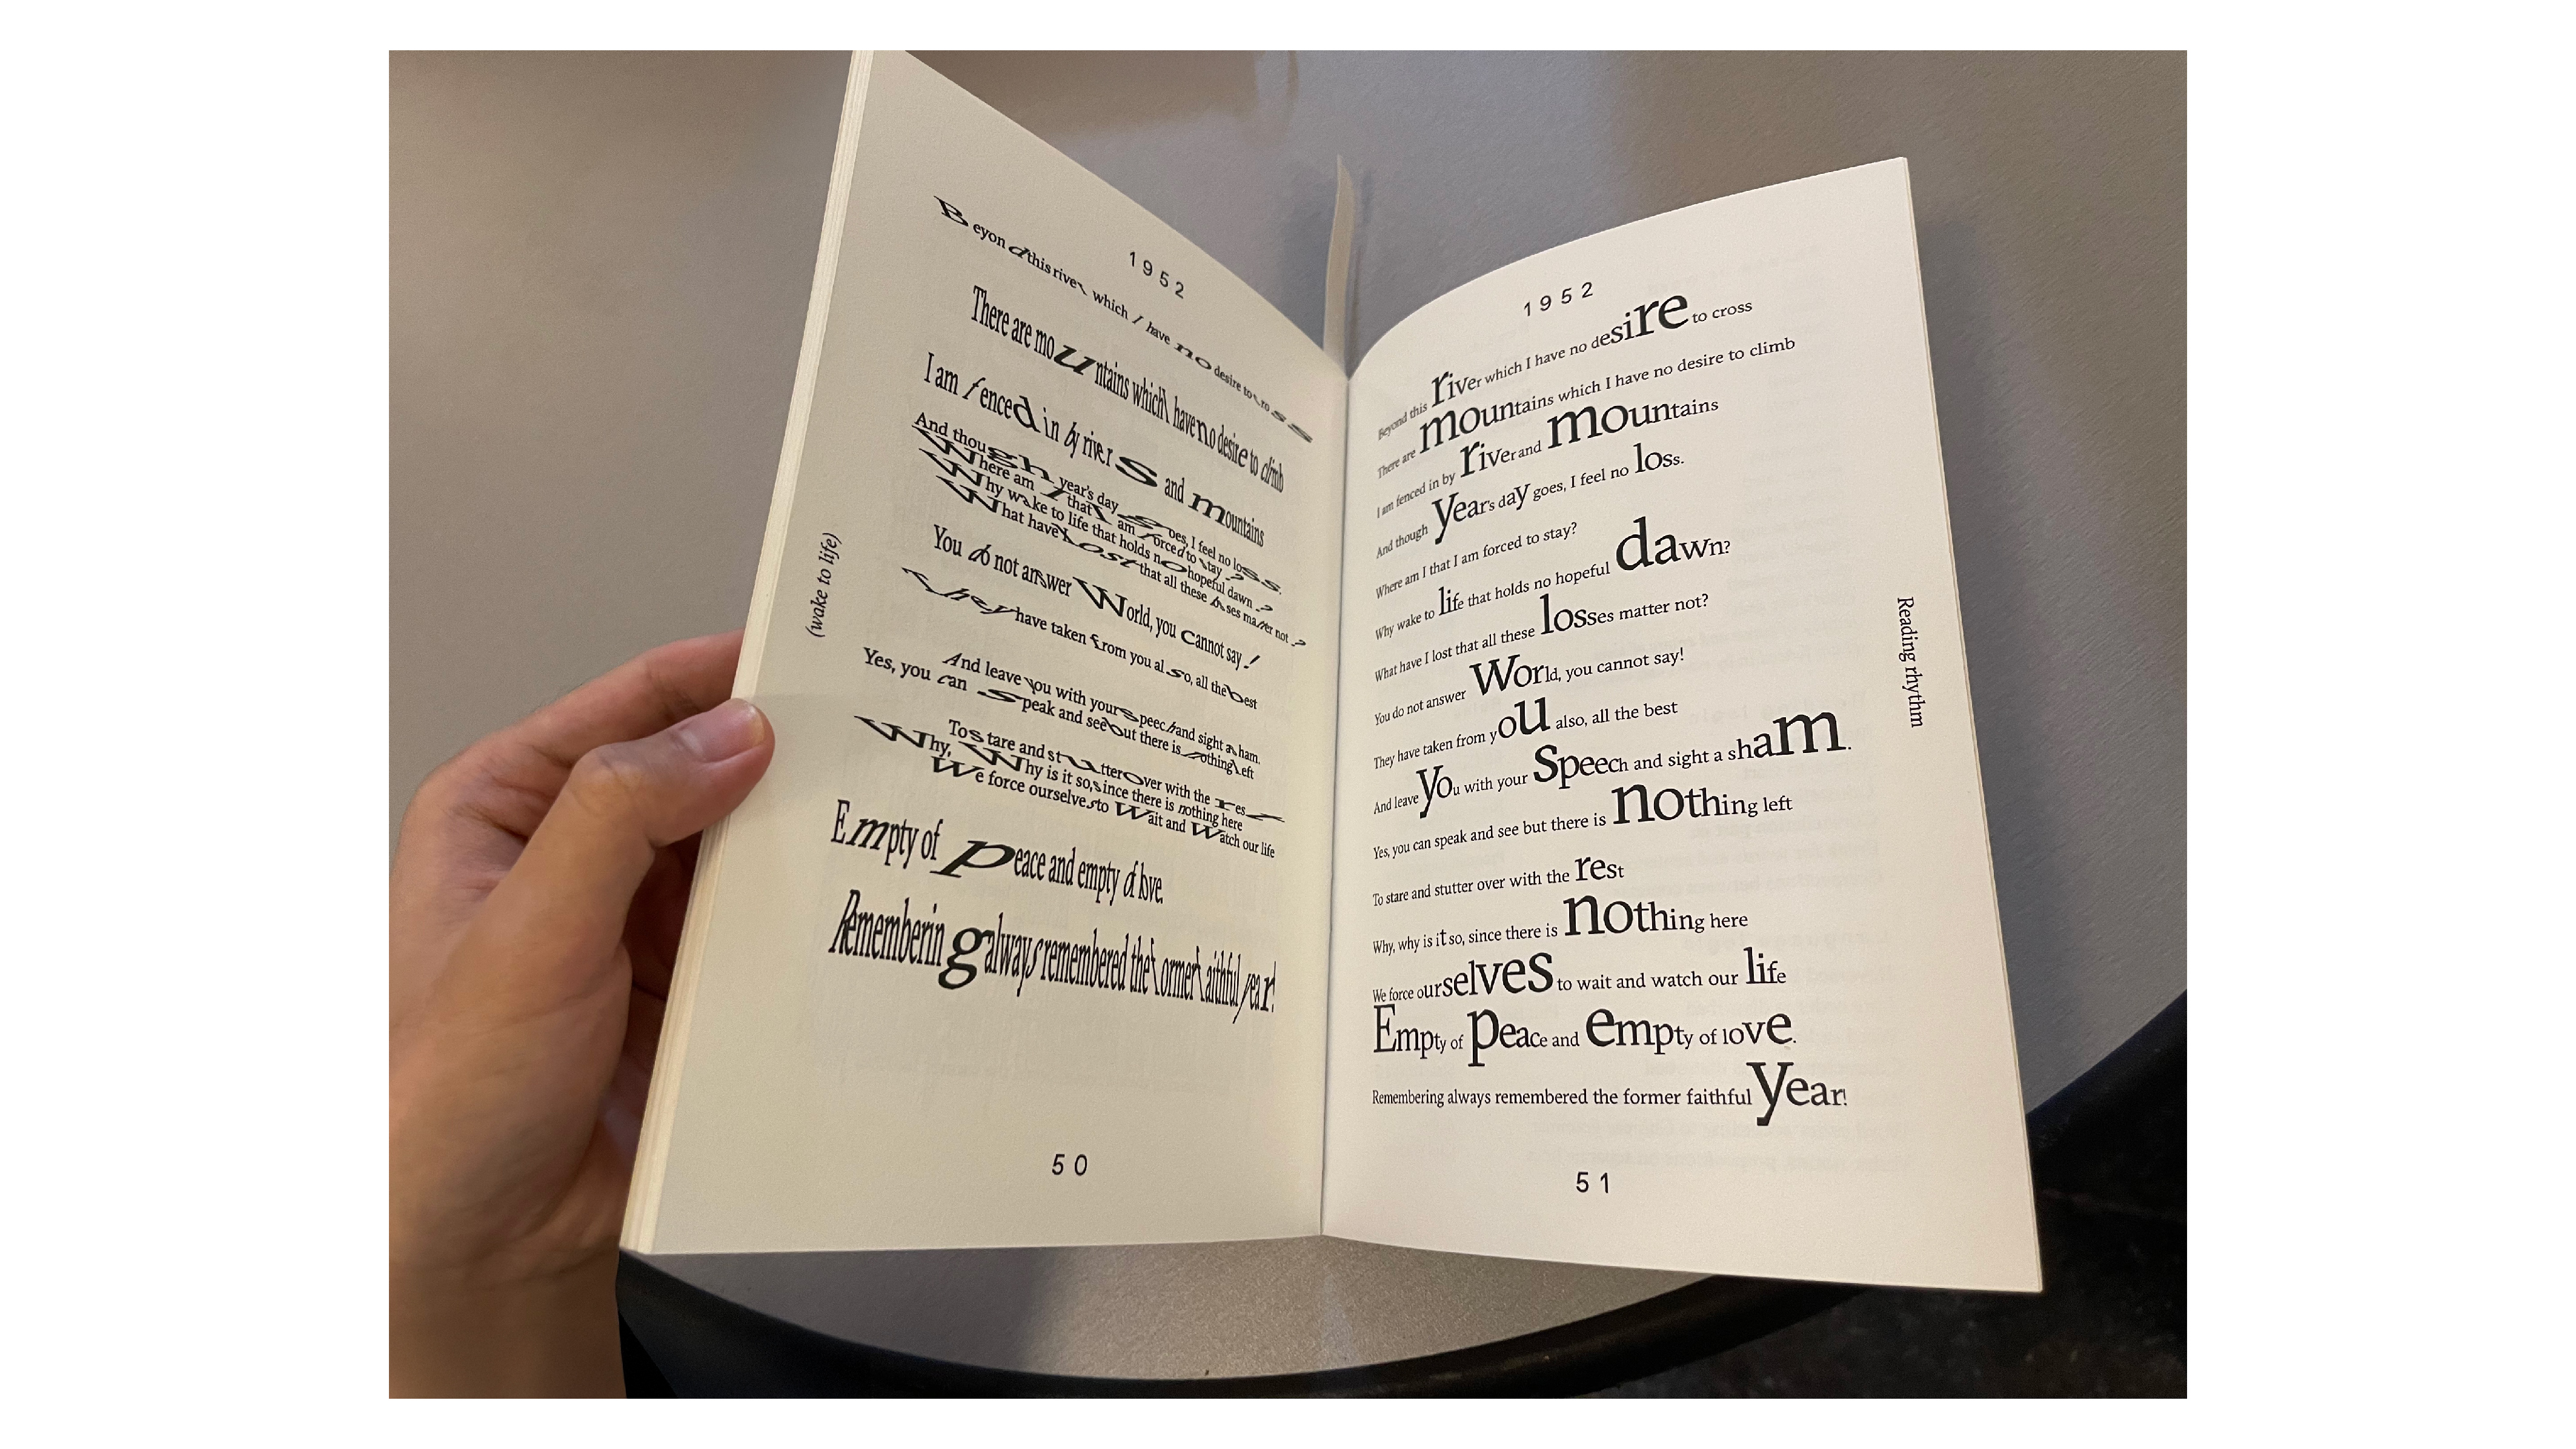 1952
Beyond this river which I have no desire to cross
There are mountains which I have no desire to climb
I am fenced in by rivers and mountains
And though year's day goes, I feel no loss.
Where am I that I am forced to stay?
Why wake to life that holds no hopeful dawn?
What have I lost that all these losses matter not?
You do not answer World, you cannot say!
They have taken from you also, all the best
And leave you with your speech and sight a sham.
Yes, you can speak and see but there is nothing left
To stare and stutter over with the rest
Why, Why is it so, since there is nothing here
We force ourselves to wait and Watch our life
Empty of peace and empty of love.
Remembering always remembered the former faithful year!
(wake to life)
50
1952
Beyond this river which I have no desire to cross
There are mountains which I have no desire to climb
I am fenced in by river and mountains
And though year's day goes, I feel no loss.
Where am I that I am forced to stay?
Why wake to life that holds no hopeful dawn?
What have I lost that all these losses matter not?
You do not answer World, you cannot say!
They have taken from you also, all the best
And leave you with your Speech and sight a sham.
Yes, you can speak and see but there is nothing left
To stare and stutter over with the rest
Why, why is it so, since there is nothing here
We force ourselves to wait and watch our life
Empty of peace and empty of love.
Remembering always remembered the former faithful year!
Reading rhythm
51